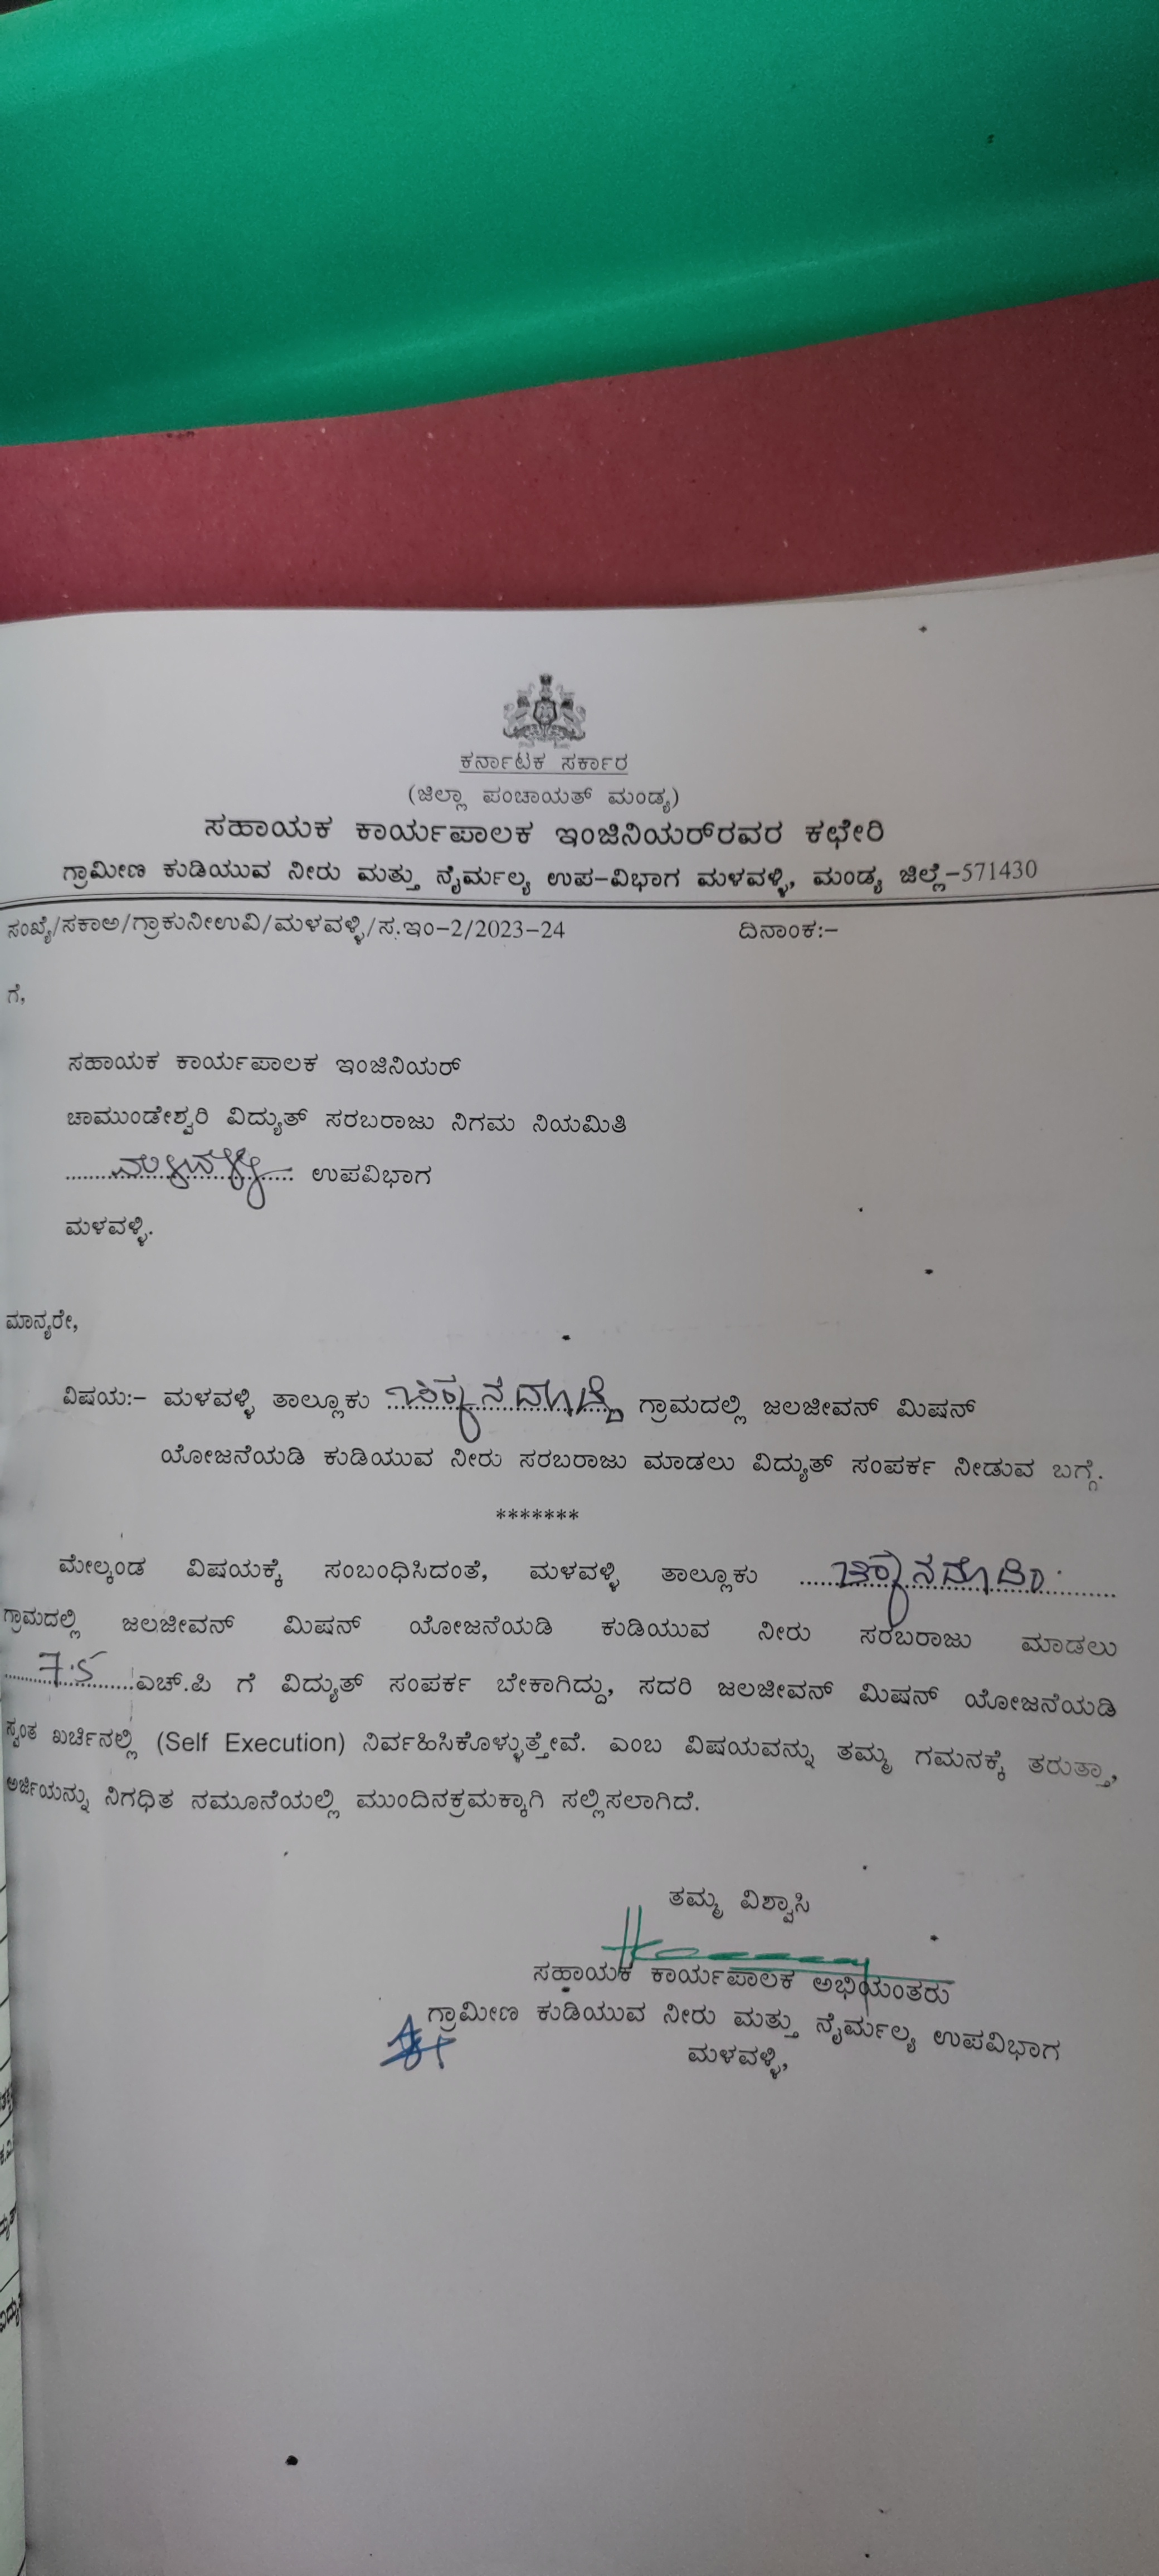 ಕರ್ನಾಟಕ ಸರ್ಕಾರ
(ಜಿಲ್ಲಾ ಪಂಚಾಯತ್ ಮಂಡ್ಯ)
ಸಹಾಯಕ ಕಾರ್ಯಪಾಲಕ ಇಂಜಿನಿಯರ್‌ರವರ ಕಛೇರಿ
ಗ್ರಾಮೀಣ ಕುಡಿಯುವ ನೀರು ಮತ್ತು ನೈರ್ಮಲ್ಯ ಉಪ-ವಿಭಾಗ ಮಳವಳ್ಳಿ, ಮಂಡ್ಯ ಜಿಲ್ಲೆ-571430
ಸಂಖ್ಯೆ/ಸಕಾಅ/ಗ್ರಾಕುನೀಉವಿ/ಮಳವಳ್ಳಿ/ಸ.ಇಂ-2/2023-24 ದಿನಾಂಕ:-
ಗೆ,
ಸಹಾಯಕ ಕಾರ್ಯಪಾಲಕ ಇಂಜಿನಿಯರ್
ಚಾಮುಂಡೇಶ್ವರಿ ವಿದ್ಯುತ್ ಸರಬರಾಜು ನಿಗಮ ನಿಯಮಿತಿ
ಮಳವಳ್ಳಿ ಉಪವಿಭಾಗ
ಮಳವಳ್ಳಿ.
ಮಾನ್ಯರೇ,
ವಿಷಯ:- ಮಳವಳ್ಳಿ ತಾಲ್ಲೂಕು ಗ್ರಾಮದಲ್ಲಿ ಜಲಜೀವನ್ ಮಿಷನ್
ಯೋಜನೆಯಡಿ ಕುಡಿಯುವ ನೀರು ಸರಬರಾಜು ಮಾಡಲು ವಿದ್ಯುತ್ ಸಂಪರ್ಕ ನೀಡುವ ಬಗ್ಗೆ.
*******
ಮೇಲ್ಕಂಡ ವಿಷಯಕ್ಕೆ ಸಂಬಂಧಿಸಿದಂತೆ, ಮಳವಳ್ಳಿ ತಾಲ್ಲೂಕು
ಗ್ರಾಮದಲ್ಲಿ ಜಲಜೀವನ್ ಮಿಷನ್ ಯೋಜನೆಯಡಿ ಕುಡಿಯುವ ನೀರು ಸರಬರಾಜು ಮಾಡಲು
7.5 ಎಚ್.ಪಿ ಗೆ ವಿದ್ಯುತ್ ಸಂಪರ್ಕ ಬೇಕಾಗಿದ್ದು, ಸದರಿ ಜಲಜೀವನ್ ಮಿಷನ್ ಯೋಜನೆಯಡಿ
ಸ್ವಂತ ಖರ್ಚಿನಲ್ಲಿ (Self Execution) ನಿರ್ವಹಿಸಿಕೊಳ್ಳುತ್ತೇವೆ. ಎಂಬ ವಿಷಯವನ್ನು ತಮ್ಮ ಗಮನಕ್ಕೆ ತರುತ್ತಾ,
ಅರ್ಜಿಯನ್ನು ನಿಗಧಿತ ನಮೂನೆಯಲ್ಲಿ ಮುಂದಿನಕ್ರಮಕ್ಕಾಗಿ ಸಲ್ಲಿಸಲಾಗಿದೆ.
ತಮ್ಮ ವಿಶ್ವಾಸಿ
ಸಹಾಯಕ ಕಾರ್ಯಪಾಲಕ ಅಭಿಯಂತರು
ಗ್ರಾಮೀಣ ಕುಡಿಯುವ ನೀರು ಮತ್ತು ನೈರ್ಮಲ್ಯ ಉಪವಿಭಾಗ
ಮಳವಳ್ಳಿ,